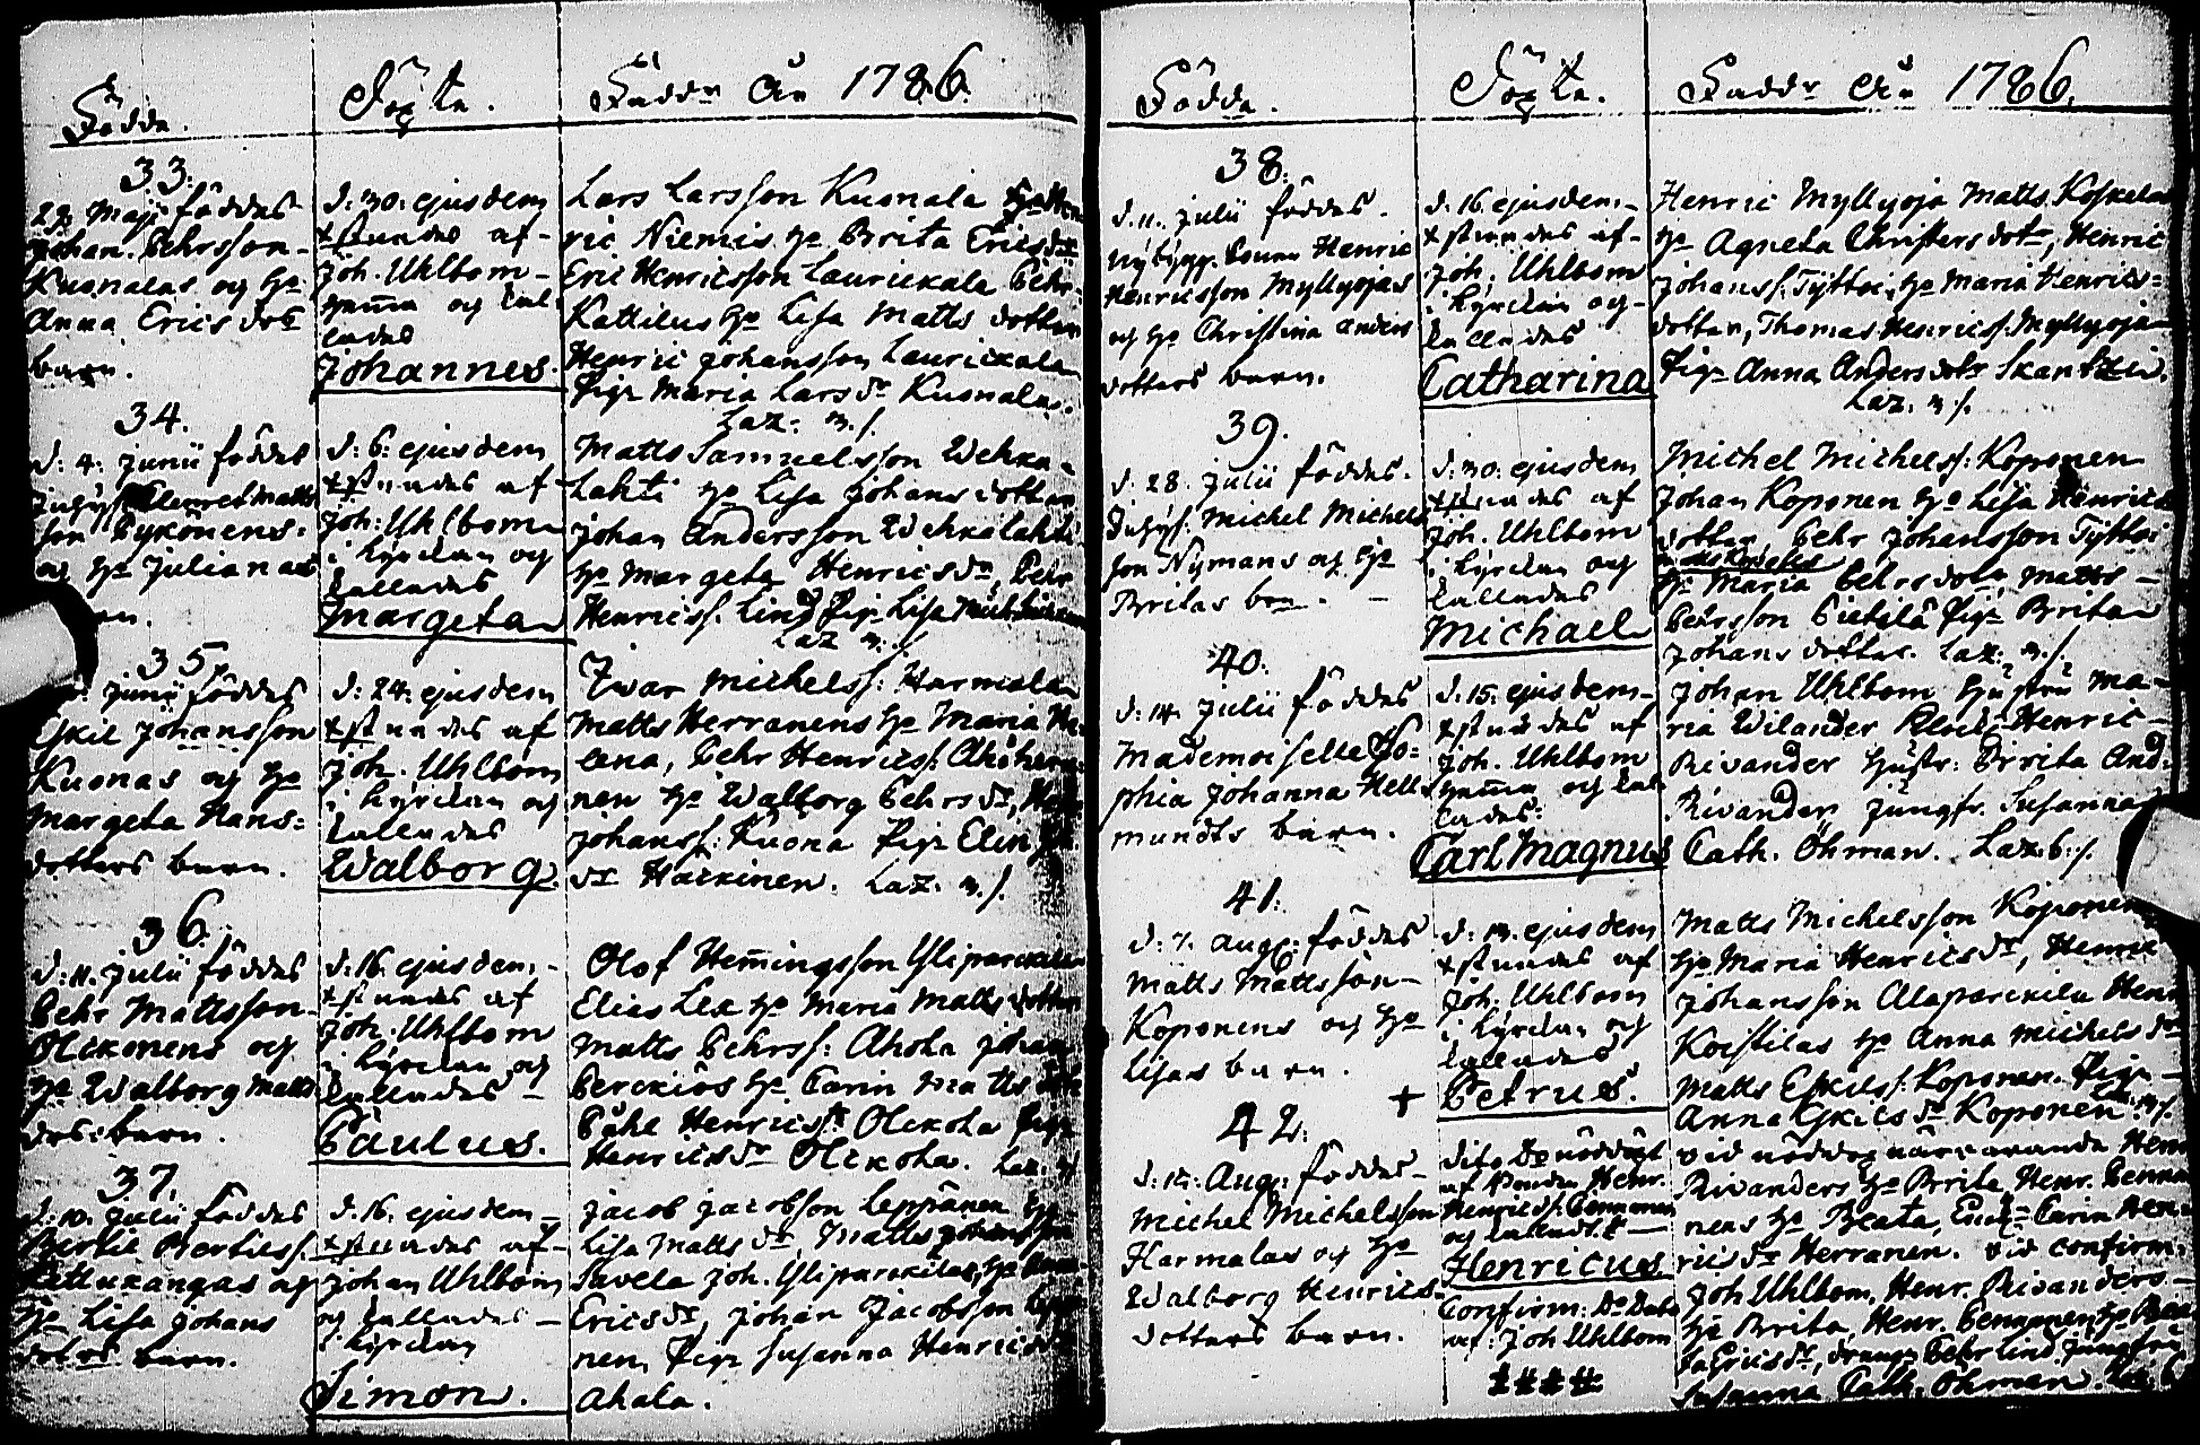 Födde.
Döpte.
Faddr År 1786.
33.
29. Maji föddes
Johan Pehrsson
Kuonalas og H:o
Anna Erics dotr
barn.
d: 30: ejusdem
xstnades af
Joh. Uhlbom
hemma og kal-
lades
Johannes.
Lars Larsson Kuonala H:o Hen
ric Niemis H:o Brita Ericsdr
Eric Henricsson Laurickala Pehr
Kattilus H:o Lisa Matts dotter
Henric Johansson Laurickala
Pig. Maria Lars dr Kuonalas.
Laz. 3. s.
34.
d: 4: Junii föddes
Matts
son Pykönens
og H:o Julianas
d: 6: ejusdem
xstnades af
Joh: Uhlbom
i kyrckan og
kallades
Margeta
Matts Samuelsson Wehka-
lahti H:o Lisa Johans dotter
Johan Andersson Wehkalahti
H:o Margeta Henricsdr, Pehr
Henricss. Lind Pig. Lisa
Laz 3. s.
35.
Junii föddes
Eskil Johansson
Kuonas og H:o
Margeta Hans-
dotters barn.
d: 24: ejusdem
xstnades af
Joh. Uhlbom
i kyrckan og
kallades
Walborg.
Iwar Michelss: Harmala
Matts Herranens H:o Maria
lena, Pehr Henricss:
nen H:o Walborg Pehrsdr,
Johanss: Kuona Pig. Elin
dr Häckinen. Laz. 3. s.
36.
d: 11. Julii föddes
Pehr Mattsson
Olckonens og
H:o Walborg Matts
dotrs barn.
d: 16. ejusdem
xstnades af
Joh. Uhlbom
i kyrckan og
kallades
Paulus.
Olof Hemingsson Yliparckila
Elias Lex H:o Maria Matts dotter
Matts Pehrss: Ahola Johan
Perckiös H:o Carin Matts
Påhl Henricss Olckola Pig.
Henricsdr Olckola. Laz.
37.
d: 10. Julii föddes
Bertil Bertilss.
Kettukangas og
H:o Lisa Johans
dotrs barn.
d. 16. ejusdem
xstnades af
Johan Uhlbom
og kallades
i kyrckan
Simon.
Jacob Jacobsson Leppänen
Lisa Matts dr Matts Johansson
Savela Joh. Yliparckilas, H:o
Ericsdr, Johan Jacobsson
nen, Pig. Susanna Henricsdr
Ahala.
Födde.
Döpte.
Faddr År 1786.
38.
d. 11. Julii föddes
nybygg. Henric
Henricsson Myllyojas
og H:o Christina Anders
dotters barn.
d. 16. ejusdem
xstnades af
Joh: Uhlbom
i kyrckan og
kallades
Catharina
Henric Myllyoja Matts Koskelas
H:o Agneta Christersdotr, Henric
Johanss: Tyttoi, H:o Maria Henrics-
dotter, Thomas Henricss: Myllyoja
Pig. Anna Andersdotr Skantzin.
Laz. 3. s.
39.
d. 28. Julii föddes.
Inhys: Michel Michels
son Nymans og H:o
Britas barn.
d: 30: ejusdem
xstnades af
Joh. Uhlbom
i kyrckan og
kallades
Michael
Michel Michelss: Koponen
Johan Koponen H:o Lisa Henrics
dotter, Pehr Johansson Tyttoi
H:o Maria Pehrsdotr, Matts
Pehrsson Pietilä Pig. Brita
Johans dotter. Laz. 3. s.
40.
d: 14. Julii föddes
Mademoiselle So-
phia Johanna Hell-
mundts barn.
d: 15: ejusdem
xstnades af
Joh. Uhlbom
hemma og kal-
lades:
Carl Magnus
Johan Uhlbom Hustru Ma-
ria Wilander Henric
Rivander Hustr: Brita And.
Rivander Jungfr. Susanna
Cath. Öhman. Laz: 6: s.
41.
d: 7. Aug: föddes
Matts Mattsson
Koponens og H:o
Lisas barn.
d: 13. ejusdem
xstnades af
Joh. Uhlbom
i kyrckan og
kallades
+ Petrus.
Matts Michelsson Koponen
H:o Maria Henricsdr, Henric
Johansson Alaparckila Henr
Koistilas H:o Anna Michels dr
Matts Eskilss: Koponen. Pig.
Anna Eskilsdr Koponen
42.
d: 12: Aug: föddes
Michel Michelsson
Harmalas og H:o
Walborg Henrics-
dotters barn.
dito Do nöddöpt
af Henr.
Henricss: Pennanen
og kallades
Henricus.
Confirm: Do Dato
af: Joh Uhlbom
vid nöddop närvarande Henr
Rivanders H:o Brita, Henr. Penna
nens H:o Beata, Carin Hen-
ricsdr Herranen. vid confirm:
Joh Uhlbom, Henr. Rivanders
H:o Brita, Henr. Pennanen H:o Bea
ta Ericsdr, dräng. Pehr Lind Jungfru
Susanna Cath. Öhman.